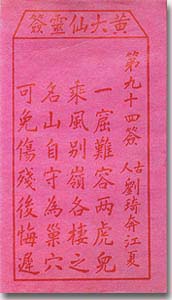 黃大仙靈簽
第九十四簽 古人 劉琦奔江夏
一窟難容兩虎兕
乘風別嶺各棲之
名山自守為巢穴
可免傷殘後悔遲